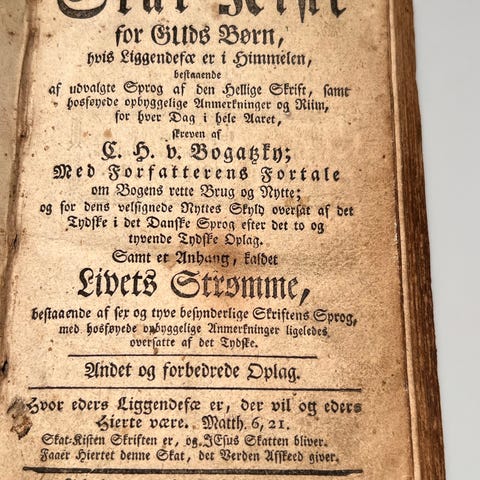 Skat-Kiste
for GUds Børn,
hvis Liggendefæ er i Himmelen,
bestaaende
af udvalgte Sprog af den Hellige Skrift, samt
hosføyede opbyggelige Anmerkninger og Riim,
for hver Dag i hele Aaret,
skreven af
C. H. v. Bogatzky;
Med Forfatterens Fortale
om Bogens rette Brug og Nytte;
og for dens velsignede Nyttes Skyld oversat af det
Tydske i det Danske Sprog efter det to og
tyvende Tydske Oplag.
Samt et Anhang, kaldet
Livets Strømme,
bestaaende af sex og tyve besynderlige Skriftens Sprog,
med hosføyede opbyggelige Anmerkninger ligeledes
oversatte af det Tydske.
Andet og forbedrede Oplag.
Hvor eders Liggendefæ er, der vil og eders
Hierte være. Matth. 6, 21.
Skat-Kisten Skriften er, og JEsus Skatten bliver.
Faaer Hiertet denne Skat, det Verden Afskeed giver.